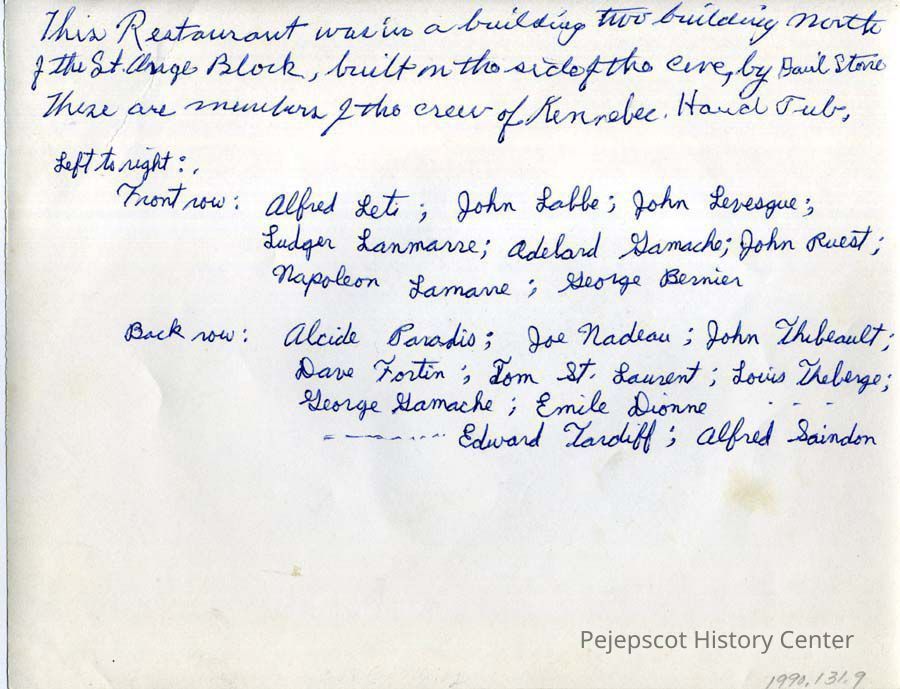 This Restaurant was in a building two building north
of the St. Ange Block, built on the side of the cove, by Stone
These are members of the crew of Kennebec. Hand Tub,
Left to right:.
Front row: Alfred Leti; John Labbe; John Levesque;
Ludger Lanmarre; Adelard Gamache; John Ruest;
Napoleon Lamarre; George Bernier
Back row: Alcide Paradis; Joe Nadeau; John Thibeault;
Dave Fortin; Tom St. Laurent; Louis Theberge;
George Gamache; Emile Dionne - - -
--------- Edward Tardiff; Alfred Saindon
Pejepscot History Center
1990.131.9